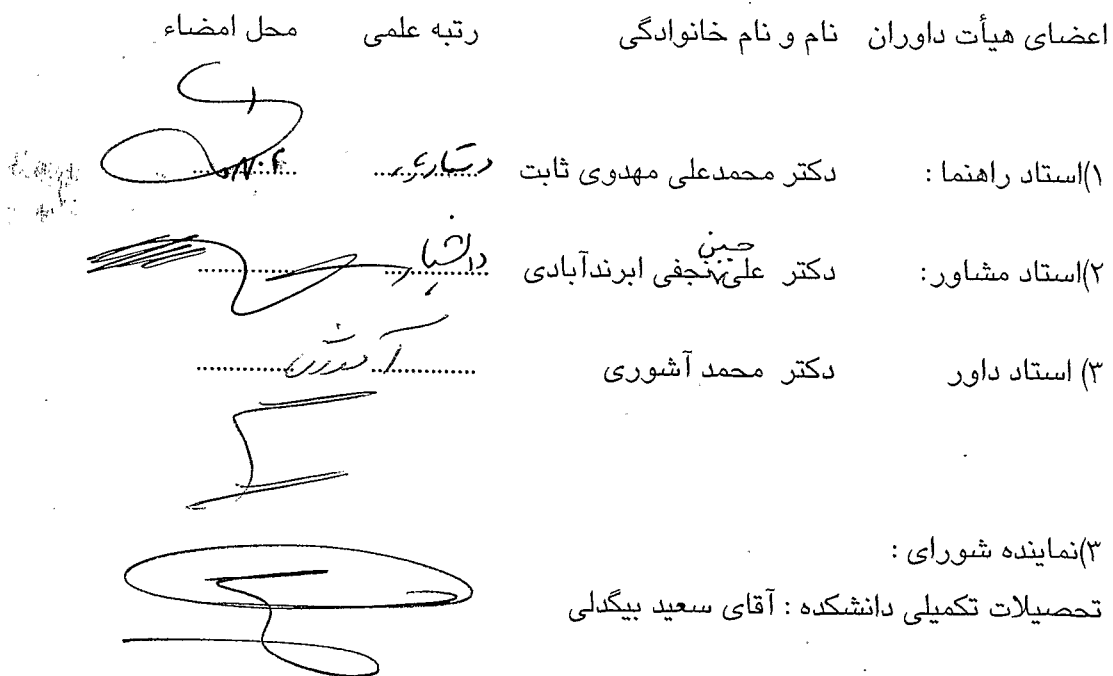 اعضای هیأت داوران نام و نام خانوادگی رتبه علمی محل امضاء
۱)استاد راهنما : دکتر محمدعلی مهدوی ثابت
۲)استاد مشاور: دکتر علی حسین نجفی ابرندآبادی دانشیار
۳) استاد داور دکتر محمد آشوری
۳)نماینده شورای :
تحصیلات تکمیلی دانشکده : آقای سعید بیگدلی